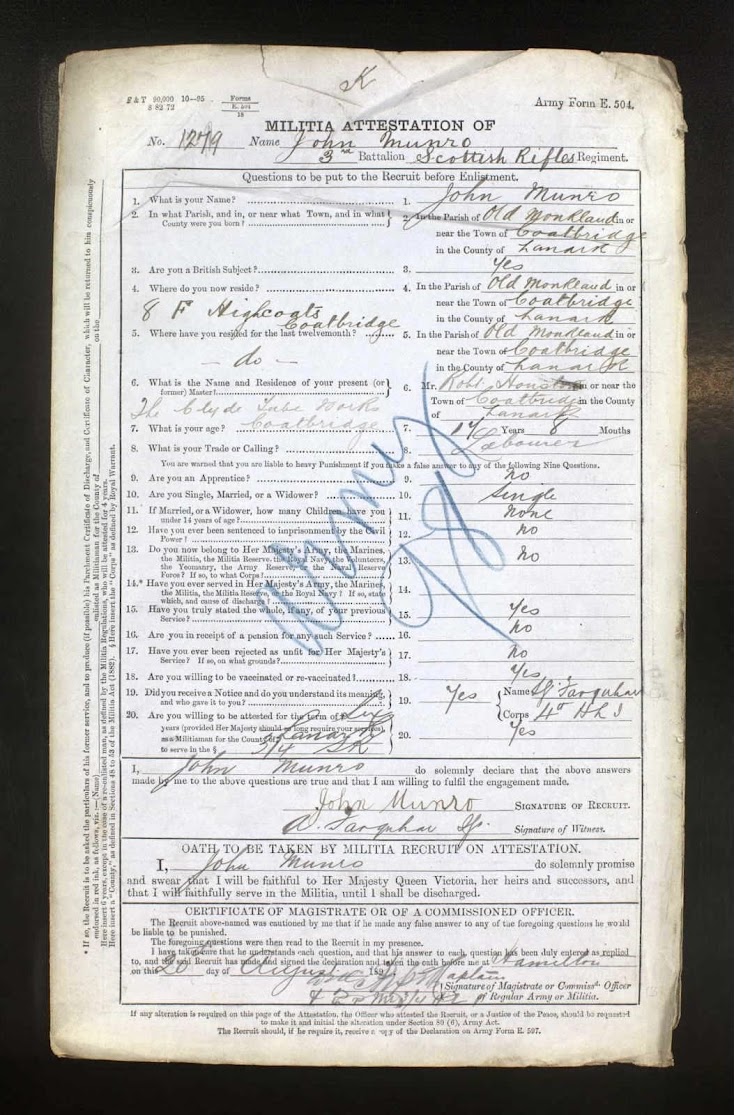 K
F & T 90,000 10—95 Forms
8 82 72 E. 504
18
Army Form E. 504.
MILITIA ATTESTATION OF
No. 1279 Name John Munro
3rd Battalion Scottish Rifles Regiment.
Questions to be put to the Recruit before Enlistment.
1. What is your Name? 1. John Munro
2. In what Parish, and in, or near what Town, and in what 2. In the Parish of Old Monkland in or
County were you born? near the Town of Coatbridge
in the County of Lanark
3. Are you a British Subject? 3. Yes
4. Where do you now reside? 4. In the Parish of Old Monkland in or
8 F Highcoats near the Town of Coatbridge
Coatbridge in the County of Lanark
5. Where have you resided for the last twelvemonth? 5. In the Parish of Old Monkland in or
— do — near the Town of Coatbridge
in the County of Lanark
6. What is the Name and Residence of your present (or 6. Mr. Robt in or near the
former) Master? Town of Coatbridge in the County
The Clyde Tube Works of Lanark
Coatbridge
7. What is your age? 7. 17 Years 8 Months
8. What is your Trade or Calling? 8. Labourer
You are warned that you are liable to heavy Punishment if you make a false answer to any of the following Nine Questions.
9. Are you an Apprentice? 9. No
10. Are you Single, Married, or a Widower? 10. Single
11. If Married, or a Widower, how many Children have you 11. None
under 14 years of age?
12. Have you ever been sentenced to imprisonment by the Civil 12. No
Power?
13. Do you now belong to Her Majesty's Army, the Marines, 13. No
the Militia, the Militia Reserve, the Royal Navy, the Volunteers,
the Yeomanry, the Army Reserve, or the Naval Reserve
Force? If so, to what Corps?
14.* Have you ever served in Her Majesty's Army, the Marines, 14.
the Militia, the Militia Reserve, or the Royal Navy? If so, state
which, and cause of discharge?
15. Have you truly stated the whole, if any, of your previous 15. Yes
Service?
16. Are you in receipt of a pension for any such Service? 16. No
17. Have you ever been rejected as unfit for Her Majesty's 17. No
Service? If so, on what grounds?
18. Are you willing to be vaccinated or re-vaccinated? 18. Yes
19. Did you receive a Notice and do you understand its meaning, 19. Yes Name Sj. Farquhar
and who gave it to you? Corps 4th HLI
20. Are you willing to be attested for the term of six 20. Yes
years (provided Her Majesty should so long require your services)
as a Militiaman for the County of Lanark
to serve in the § 3/4 SR
Army
I, John Munro do solemnly declare that the above answers
made by me to the above questions are true and that I am willing to fulfil the engagement made.
John Munro SIGNATURE OF RECRUIT.
A. Farquhar Sj. Signature of Witness.
OATH TO BE TAKEN BY MILITIA RECRUIT ON ATTESTATION.
I, John Munro do solemnly promise
and swear that I will be faithful to Her Majesty Queen Victoria, her heirs and successors, and
that I will faithfully serve in the Militia, until I shall be discharged.
CERTIFICATE OF MAGISTRATE OR OF A COMMISSIONED OFFICER.
The Recruit above-named was cautioned by me that if he made any false answer to any of the foregoing questions he would
be liable to be punished.
The foregoing questions were then read to the Recruit in my presence.
I have taken care that he understands each question, and that his answer to each question has been duly entered as replied
to, and the said Recruit has made and signed the declaration and taken the oath before me at Hamilton
on this 26th day of August 189
Captain
Signature of Magistrate or Commissd. Officer
of Regular Army or Militia.
If any alteration is required on this page of the Attestation, the Officer who attested the Recruit, or a Justice of the Peace, should be requested
to make it and initial the alteration under Section 80 (6), Army Act.
The Recruit should, if he require it, receive a copy of the Declaration on Army Form E. 507.
* If so, the Recruit is to be asked the particulars of his former service, and to produce (if possible) his Parchment Certificate of Discharge, and Certificate of Character, which will be returned to him conspicuously
endorsed in red ink, as follows, viz.:—(Name) enlisted as Militiaman for the County of on the
Here insert 6 years, except in the case of a re-enlisted man, as defined by the Militia Regulations, who will be attested for 4 years.
Here insert a "County," as defined in Sections 48 to 53 of the Militia Act (1882). § Here insert the "Corps" as defined by Royal Warrant.